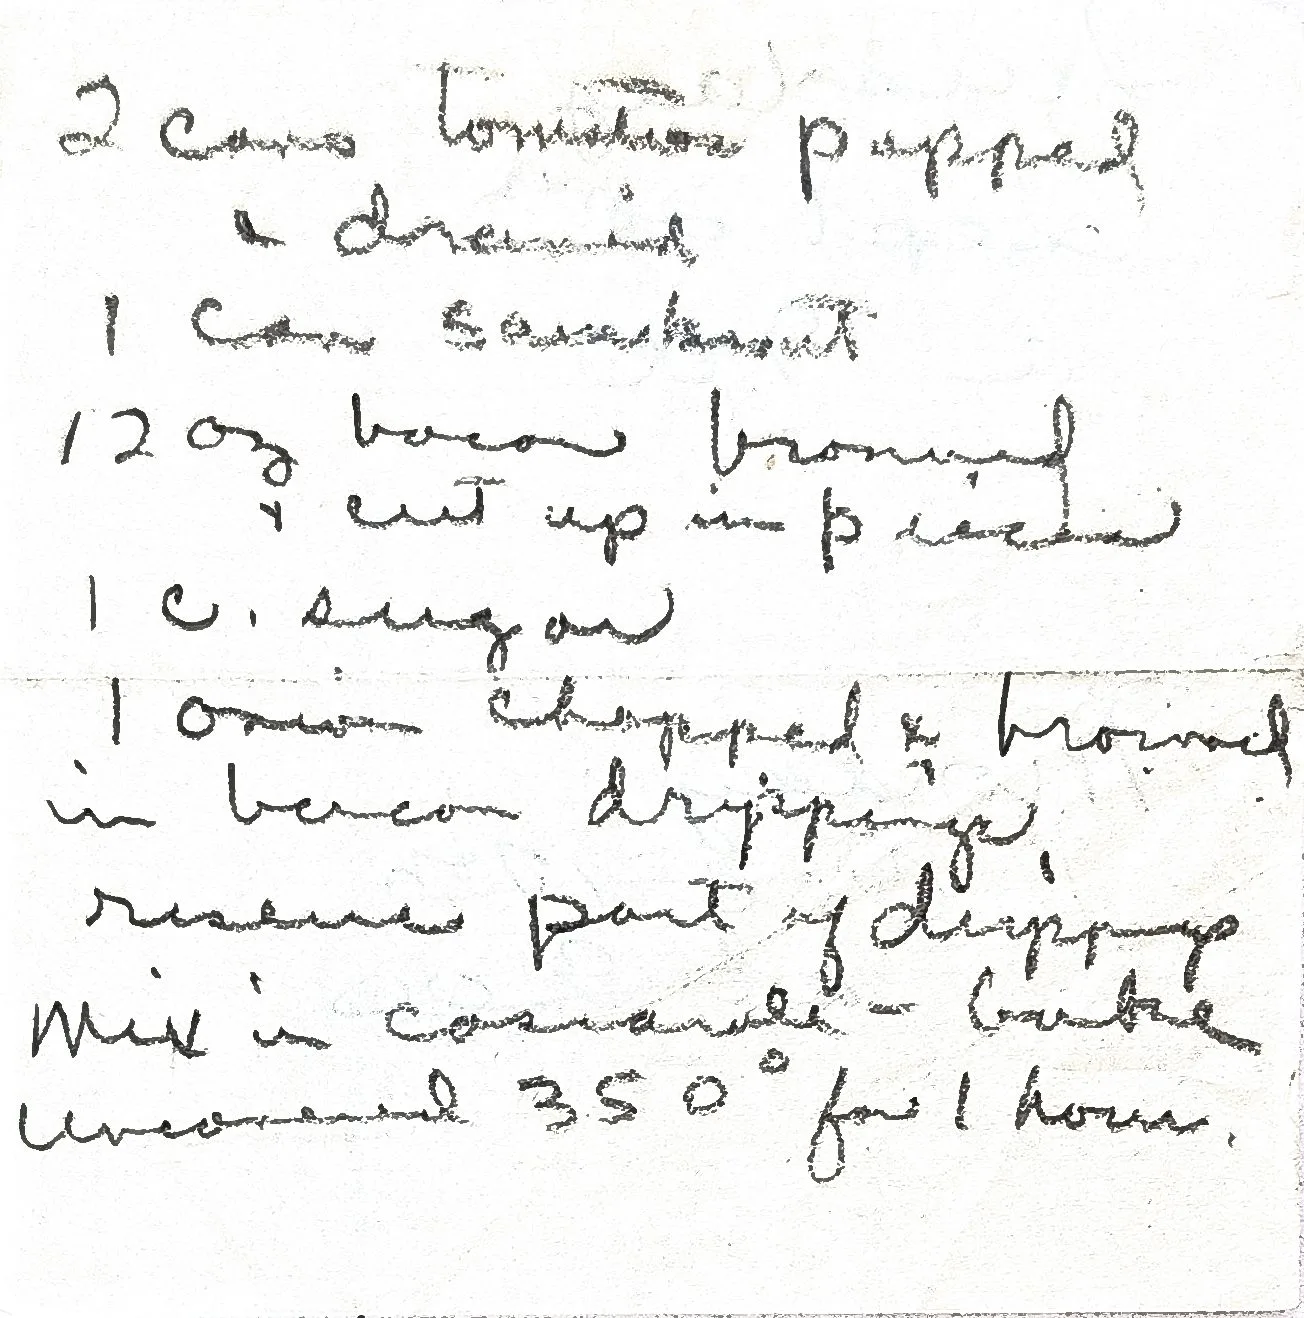 2 cans tomatoes pepped
& drained
1 can sauerkraut
12 oz bacon browned
& cut up in pieces
1 c. sugar
1 onion chopped & browned
in bacon drippings,
reserve part of drippings
Mix in casserole - bake
uncovered 350° for 1 hour.